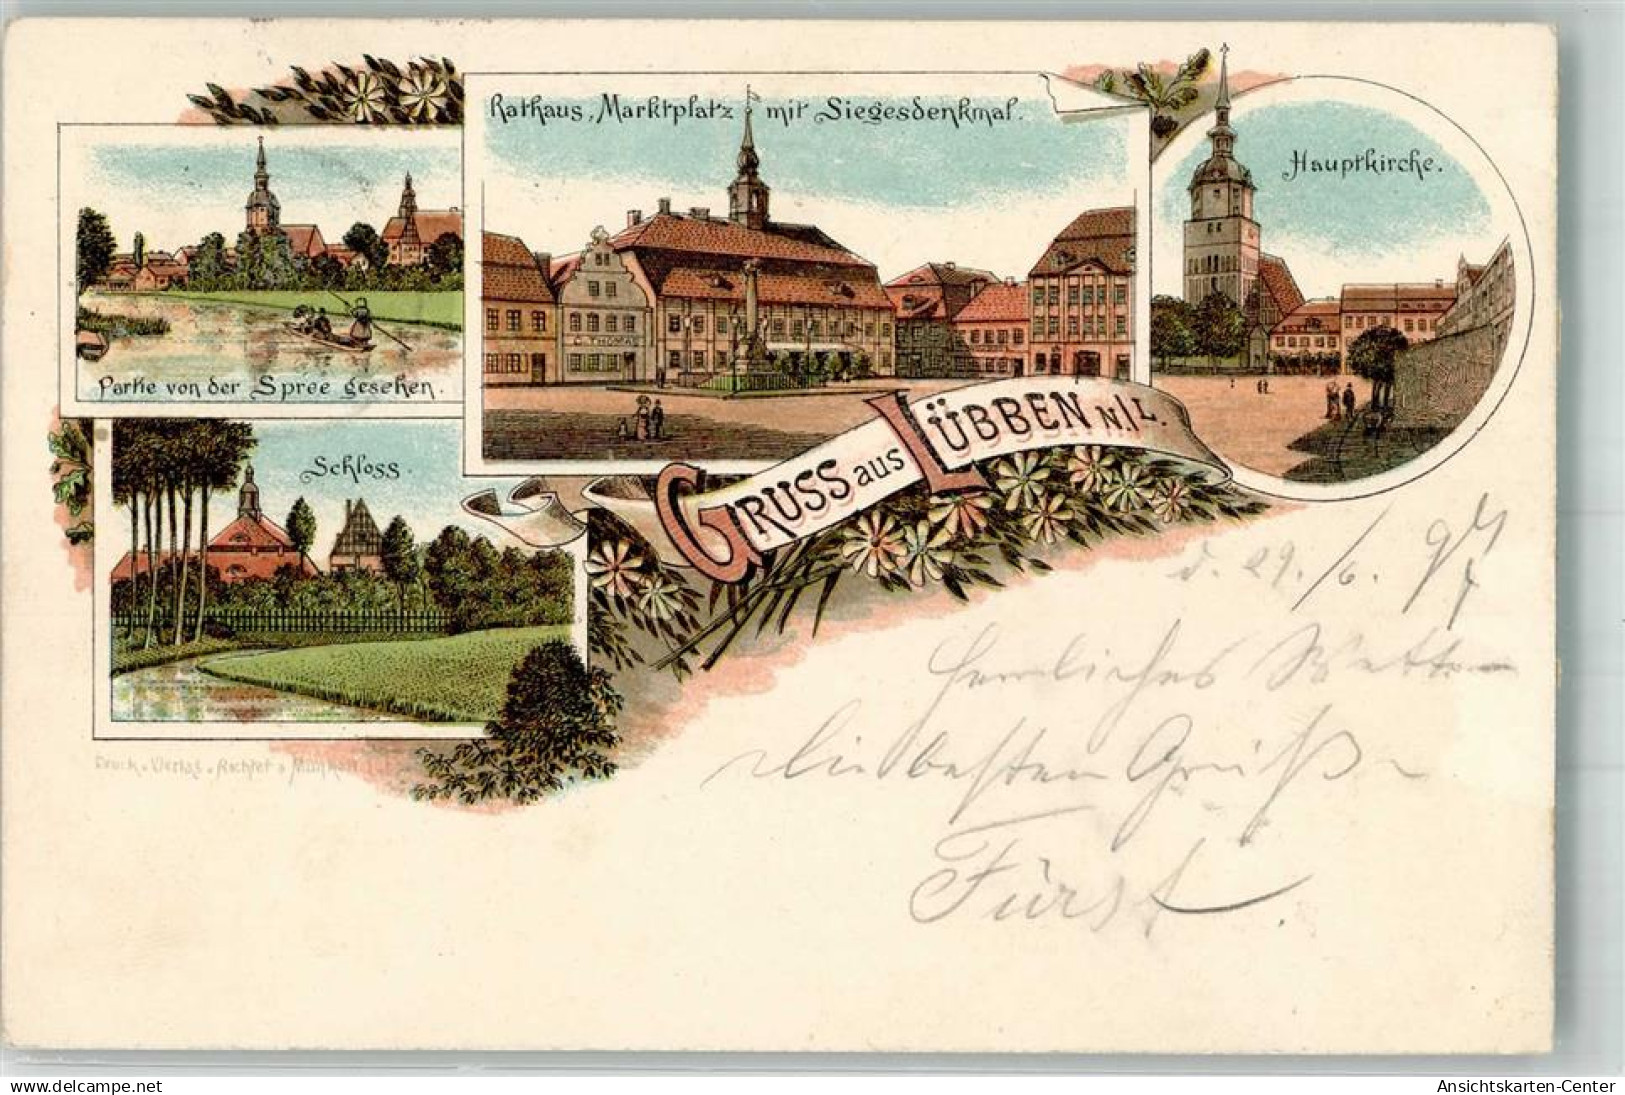 Rathaus, Marktplatz mit Siegesdenkmal.
Hauptkirche.
Partie von der Spree gesehen.
C. THOMAS
Schloss.
GRUSS aus LÜBBEN N./L.
Druck u. Verlag v. Richter &
d. 29./6. 97
Herrliches Wetter
die besten Grüße
Fürst.
www.delcampe.net
Ansichtskarten-Center